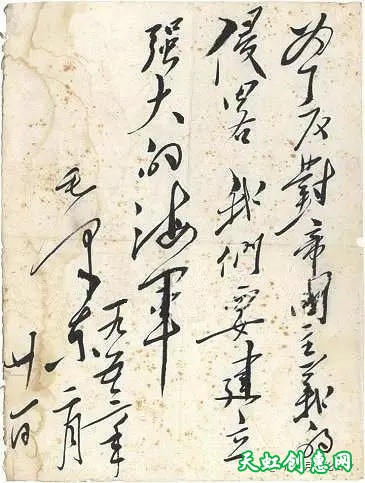 为了反對帝國主義的
侵略我們要建立
强大的海軍
毛泽东
一九五三年
二月
廿一日
天虹创意网